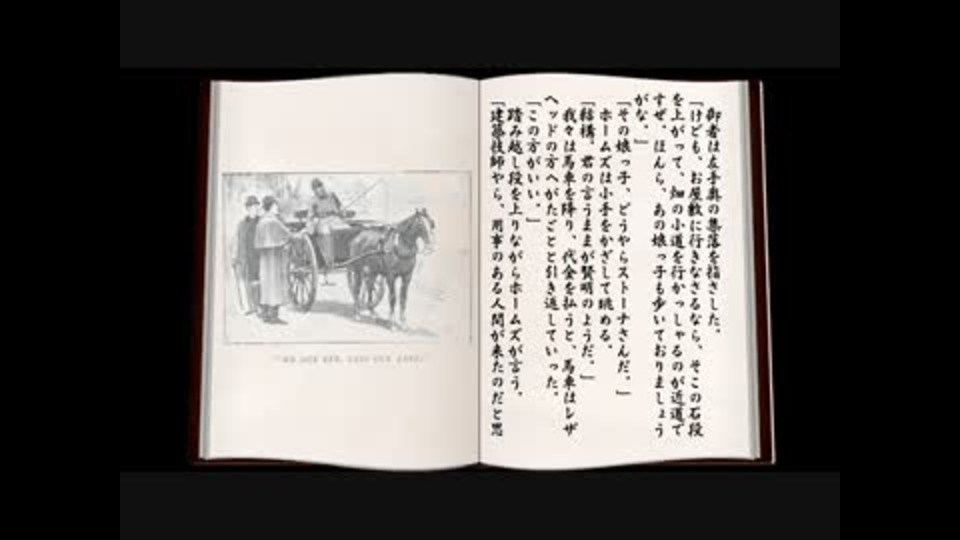 御者は左手奥の集落を指さした。
「けども、お屋敷に行きなさるなら、そこの石段
を上がって、畑の小道を行かっしゃるのが近道で
すぜ。ほんら、あの娘っ子も歩いておりましょう
がな。」
「その娘っ子、どうやらストーナさんだ。」
ホームズは小手をかざして眺める。
「結構。君の言うままが賢明のようだ。」
我々は馬車を降り、代金を払うと、馬車はレザ
ヘッドの方へがたごとと引き返していった。
「この方がいい。」
踏み越し段を上りながらホームズが言う。
「建築技師やら、用事のある人間が来たのだと思